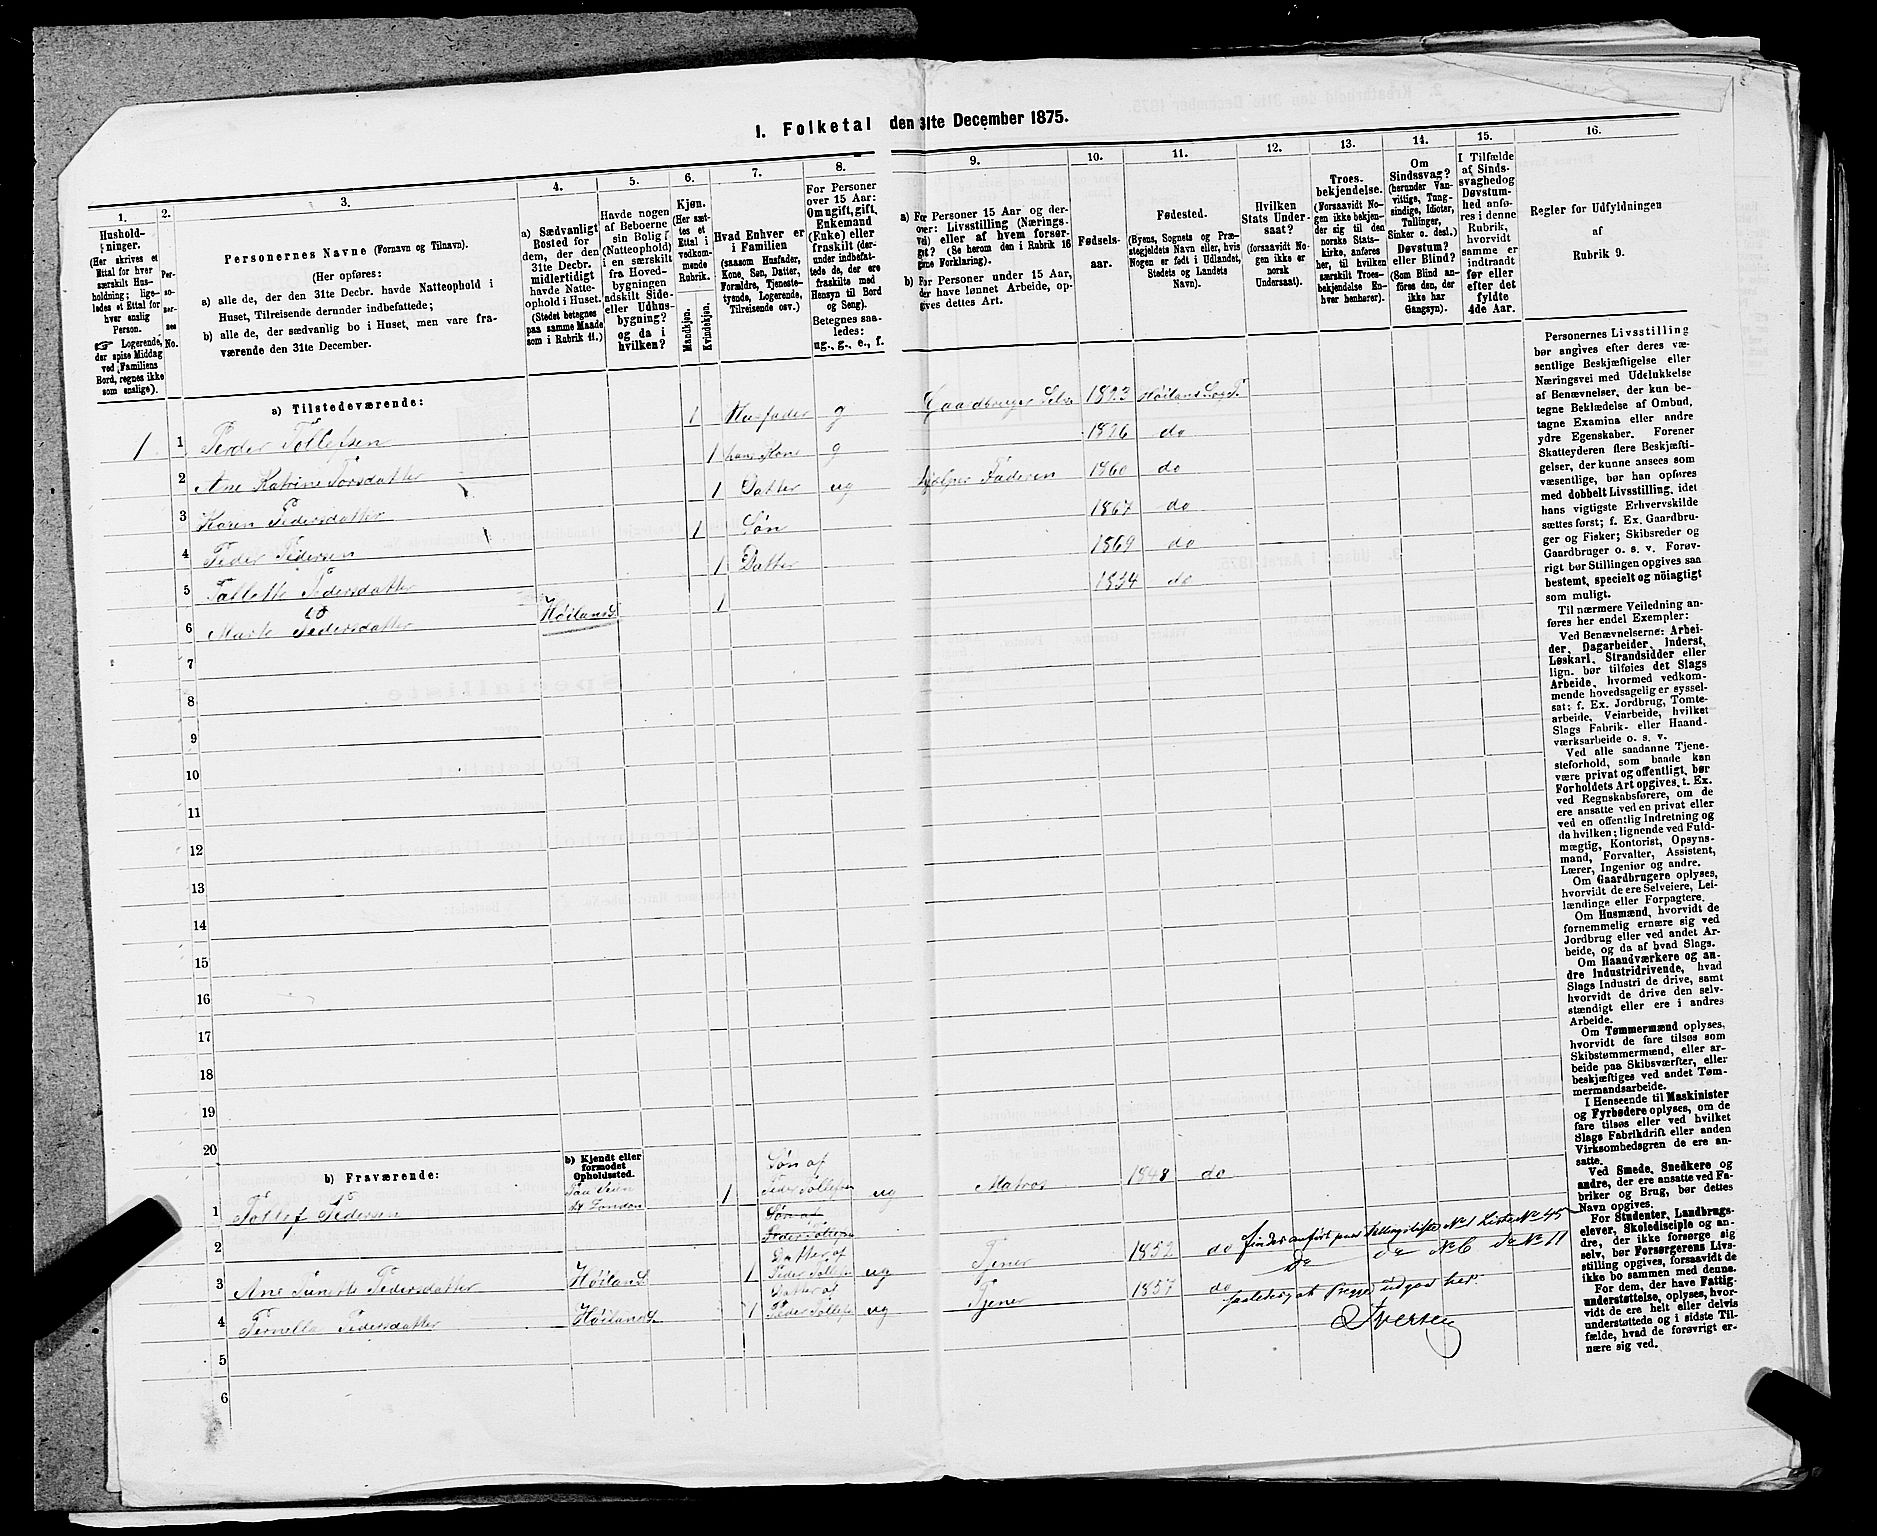 I. Folketal den 31te December 1875.
1.
Hushold-
ninger.
(Her skrives et
Ettal for hver
særskilt Hus-
holdning; lige-
ledes et Ettal for
hver enslig
Person.
☞ Logerende,
der spise Middag
ved Familiens
Bord, regnes ikke
som enslige).
2.
Per-
so-
ner-
nes
No.
3.
Personernes Navne (Fornavn og Tilnavn).
(Her opføres:
a) alle de, der den 31te Decbr. havde Natteophold i
Huset, Tilreisende derunder indbefattede;
b) alle de, der sædvanlig bo i Huset, men vare fra-
værende den 31te December.
4.
a) Sædvanligt
Bosted for
dem, der den
31te Decbr.
midlertidigt
havde Natte-
ophold i Huset.
(Stedet betegnes
paa samme Maade
som i Rubrik 11.)
5.
Havde nogen
af Beboerne
sin Bolig
(Natteophold)
i en særskilt
fra Hoved-
bygningen
adskilt Side-
eller Udhus-
bygning?
og da i
hvilken?
6.
Kjøn.
(Her sæt-
tes et
Ettal i
vedkom-
mende
Rubrik.
Mandkjøn.
Kvindekjøn.
7.
Hvad Enhver er
i Familien
(saasom Husfader,
Kone, Søn, Datter,
Forældre, Tjeneste-
tyende, Logerende,
Tilreisende osv.)
8.
For Personer
over 15 Aar:
Om ugift, gift,
Enkemand
(Enke) eller
fraskilt (der-
under indbefat-
tede de, der ere
fraskilte med
Hensyn til Bord
og Seng).
Betegnes saa-
ledes:
ug., g., e., f.
9.
a) For Personer 15 Aar og der-
over: Livsstilling (Nærings-
vei) eller af hvem forsør-
get? (Se herom den i Rubrik 16
givne Forklaring).
b) For Personer under 15 Aar,
der have lønnet Arbeide, op-
gives dettes Art.
10.
Fødsels-
aar.
11.
Fødested.
(Byens, Sognets og Præ-
stegjeldets Navn eller, hvis
Nogen er født i Udlandet,
Stedets og Landets
Navn).
12.
Hvilken
Stats Under-
saat?
(forsaavidt No-
gen ikke er
norsk
Undersaat).
13.
Troes-
bekjendelse.
(Forsaavidt No-
gen ikke bekjen-
der sig til den
norske Stats-
kirke, anføres
her, til hvilken
særskilt Troes-
bekjendelse En-
hver henhører).
14.
Om
Sindssvag?
(herunder Van-
vittige, Tung-
sindige, Idioter,
Tullinger,
Sinker o. desl.)
Døvstum?
eller Blind?
(Som Blind an-
føres den, der
ikke har
Gangsyn).
15.
I Tilfælde
af Sinds-
svaghed og
Døvstum-
hed anfø-
res i denne
Rubrik,
hvorvidt
samme er
indtraadt
før eller
efter det
fyldte
4de Aar.
16.
Regler for Udfyldningen
af
Rubrik 9.
a) Tilstedeværende:
1 1 Peder Tollefsen 1 Husfader g Gaardbruger 1823
2 Ane Katrine Torsdatter 1 hans Kone g 1826 do
3 Karen Pedersdatter 1 Datter ug hjelper Faderen 1860 do
4 Peder Pedersen 1 Søn 1867 do
5 Tollette Pedersdatter 1 Datter 1869 do
6 Marte Pedersdatter Høiland 1 1834 do
7
8
9
10
11
12
13
14
15
16
17
18
19
20
b) Fraværende:
b) Kjendt eller
formodet
Opholdssted.
1 Tollef Pedersen Paa Reise London 1 Søn af Peder Tollefsen ug Matros 1848 do
2 Søn af Peder Tollefsen
3 Ane Pedersdatter Høiland 1 Datter af Peder Tollefs ug Tjener 1852 do
4 Pernella Pedersdatter Høiland 1 Datter af Peder Tollefs ug Tjener 1857 do
findes anført paa Tellingsliste No 1 Liste No 45
Do do No 6 Do No 11
saaledes at Begge udgaa her.
Iversen
5
6
Personernes Livsstilling
bør angives efter deres væ-
sentlige Beskjæftigelse eller
Næringsvei med Udelukkelse
af Benævnelser, der kun be-
tegne Beklædelse af Ombud,
tagne Examina eller andre
ydre Egenskaber. Forener
Skatteyderen flere Beskjæfti-
gelser, der kunne ansees som
væsentlige, bør han opføres
med dobbelt Livsstilling, idet
hans vigtigste Erhvervskilde
sættes først; f. Ex. Gaardbru-
ger og Fisker; Skibsreder og
Gaardbruger o. s. v. Forøv-
rigt bør Stillingen opgives saa
bestemt, specielt og nøiagtigt
som muligt.
Til nærmere Veiledning an-
føres her endel Exempler:
Ved Benævnelserne: Arbei-
der, Dagarbeider, Inderst,
Løskarl, Strandsidder eller
lign. bør tilføies det Slags
Arbeide, hvormed vedkom-
mende hovedsagelig er syssel-
sat; f. Ex. Jordbrug, Tomte-
arbeide, Veiarbeide, hvilket
Slags Fabrik- eller Haand-
værksarbeide o. s. v.
Ved alle saadanne Tjene-
steforhold, som baade kan
være privat og offentligt, bør
Forholdets Art opgives, t. Ex.
ved Regnskabsførere, om de
ere ansatte ved en privat eller
ved en offentlig Indretning og
da hvilken; lignende ved Fuld-
mægtig, Kontorist, Opsyns-
mand, Forvalter, Assistent,
Lærer, Ingeniør og andre.
Om Gaardbrugere oplyses,
hvorvidt de ere Selveiere, Lei-
lændinge eller Forpagtere.
Om Husmænd, hvorvidt de
fornemmelig ernære sig ved
Jordbrug eller ved andet Ar-
beide, og da af hvad Slags.
Om Haandværkere og an-
dre Industridrivende, hvad
Slags Industri de drive, samt
hvorvidt de drive den selv-
stændigt eller ere i andres
Arbeide.
Om Tømmermænd oplyses,
hvorvidt de fare tilsøs som
Skibstømmermænd, eller ar-
beide paa Skibsværfter, eller
beskjæftiges ved andet Tøm-
mermandsarbeide.
I Henseende til Maskinister
og Fyrbødere oplyses, om de
fare tilsøs eller ved hvilket
Slags Fabrikdrift eller anden
Virksomhedsgren de ere an-
satte.
Ved Smede, Snedkere og
andre, der ere ansatte ved Fa-
briker og Brug, bør dettes
Navn opgives.
For Studenter, Landbrugs-
elever, Skoledisciple og an-
dre, der ikke forsørge sig
selv, bør Forsørgerens Livs-
stilling opgives, forsaavidt de
ikke bo sammen med denne.
For dem, der have Fattig-
understøttelse, oplyses, hvor-
vidt de ere helt eller delvis
understøttede og i sidste Til-
fælde, hvad de forøvrigt er-
nære sig ved.